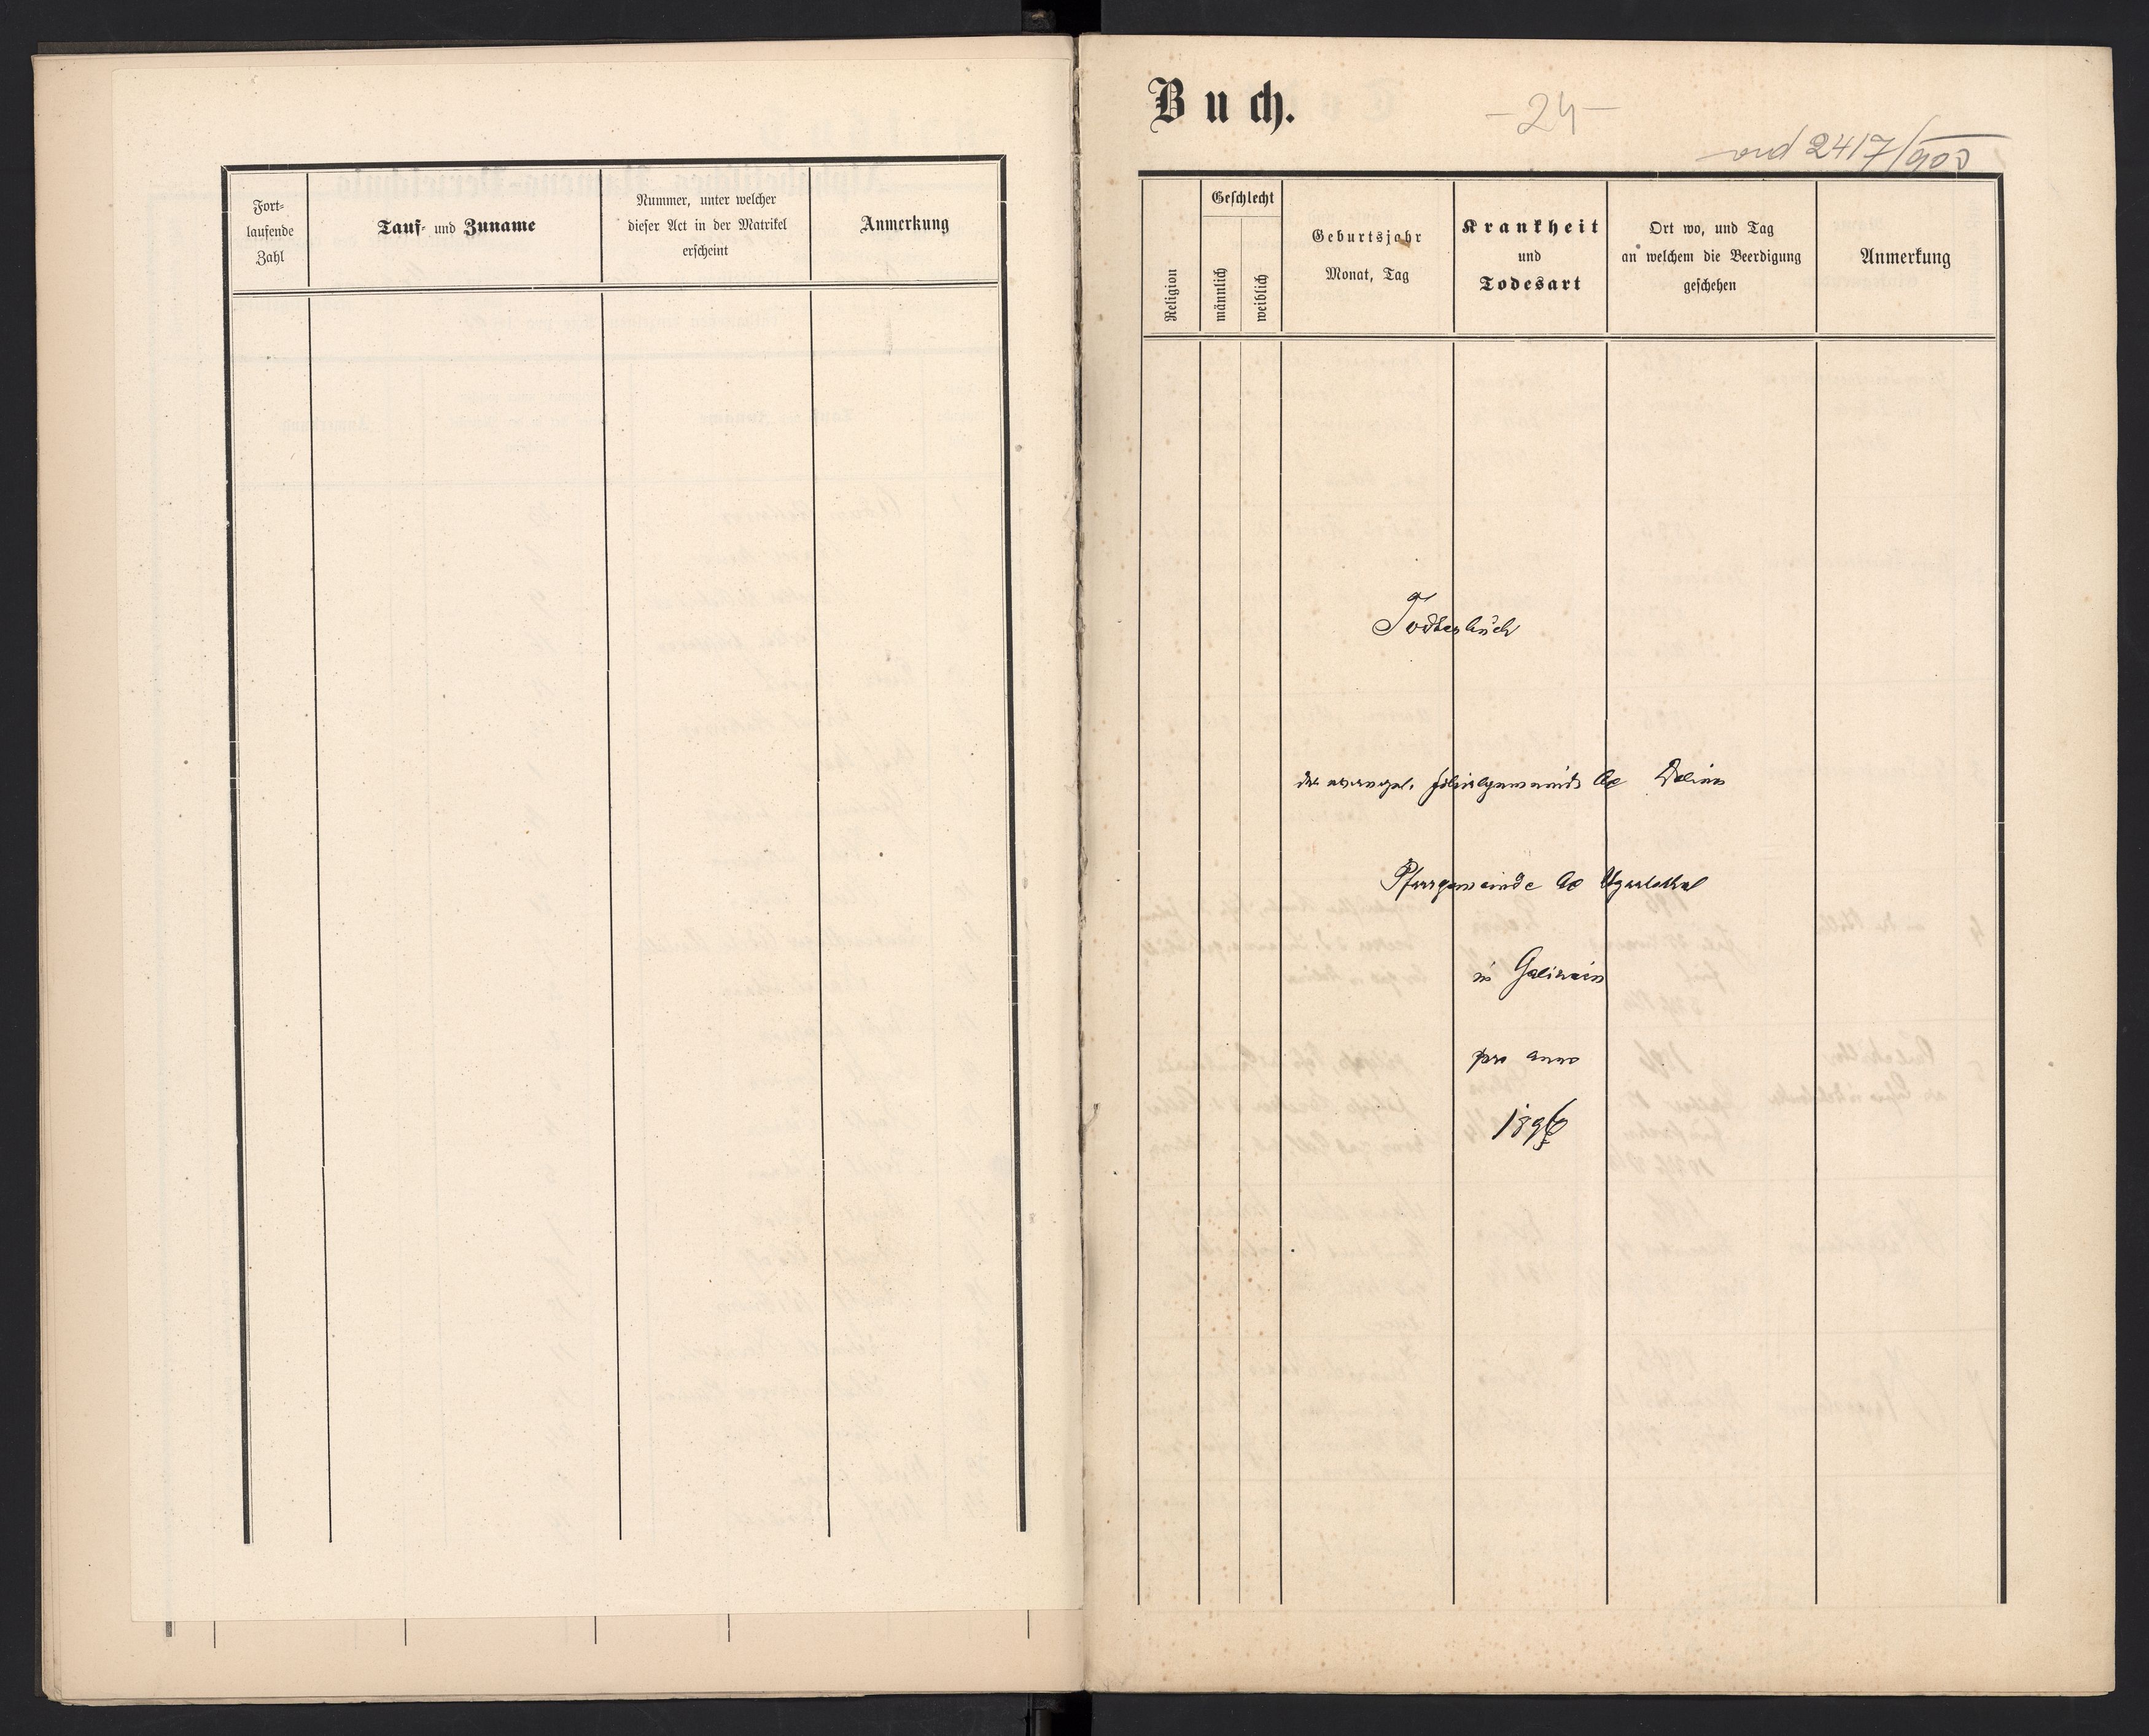 Fort-
laufende
Zahl
Tauf- und Zuname
Nummer, unter welcher
dieser Act in der Matrikel
erscheint
Anmerkung
Buch.
-24-
ad 2417/900
Religion
Geschlecht
männlich
weiblich
Geburtsjahr
Monat, Tag
Krankheit
und
Todesart
Ort wo, und Tag
an welchem die Beerdigung
geschehen
Anmerkung
Todtenbuch
der evangel. Filialgemeinde AC Dolina
Pfarrgemeinde AC Ugartsthal
in Galizien
pro anno
1896